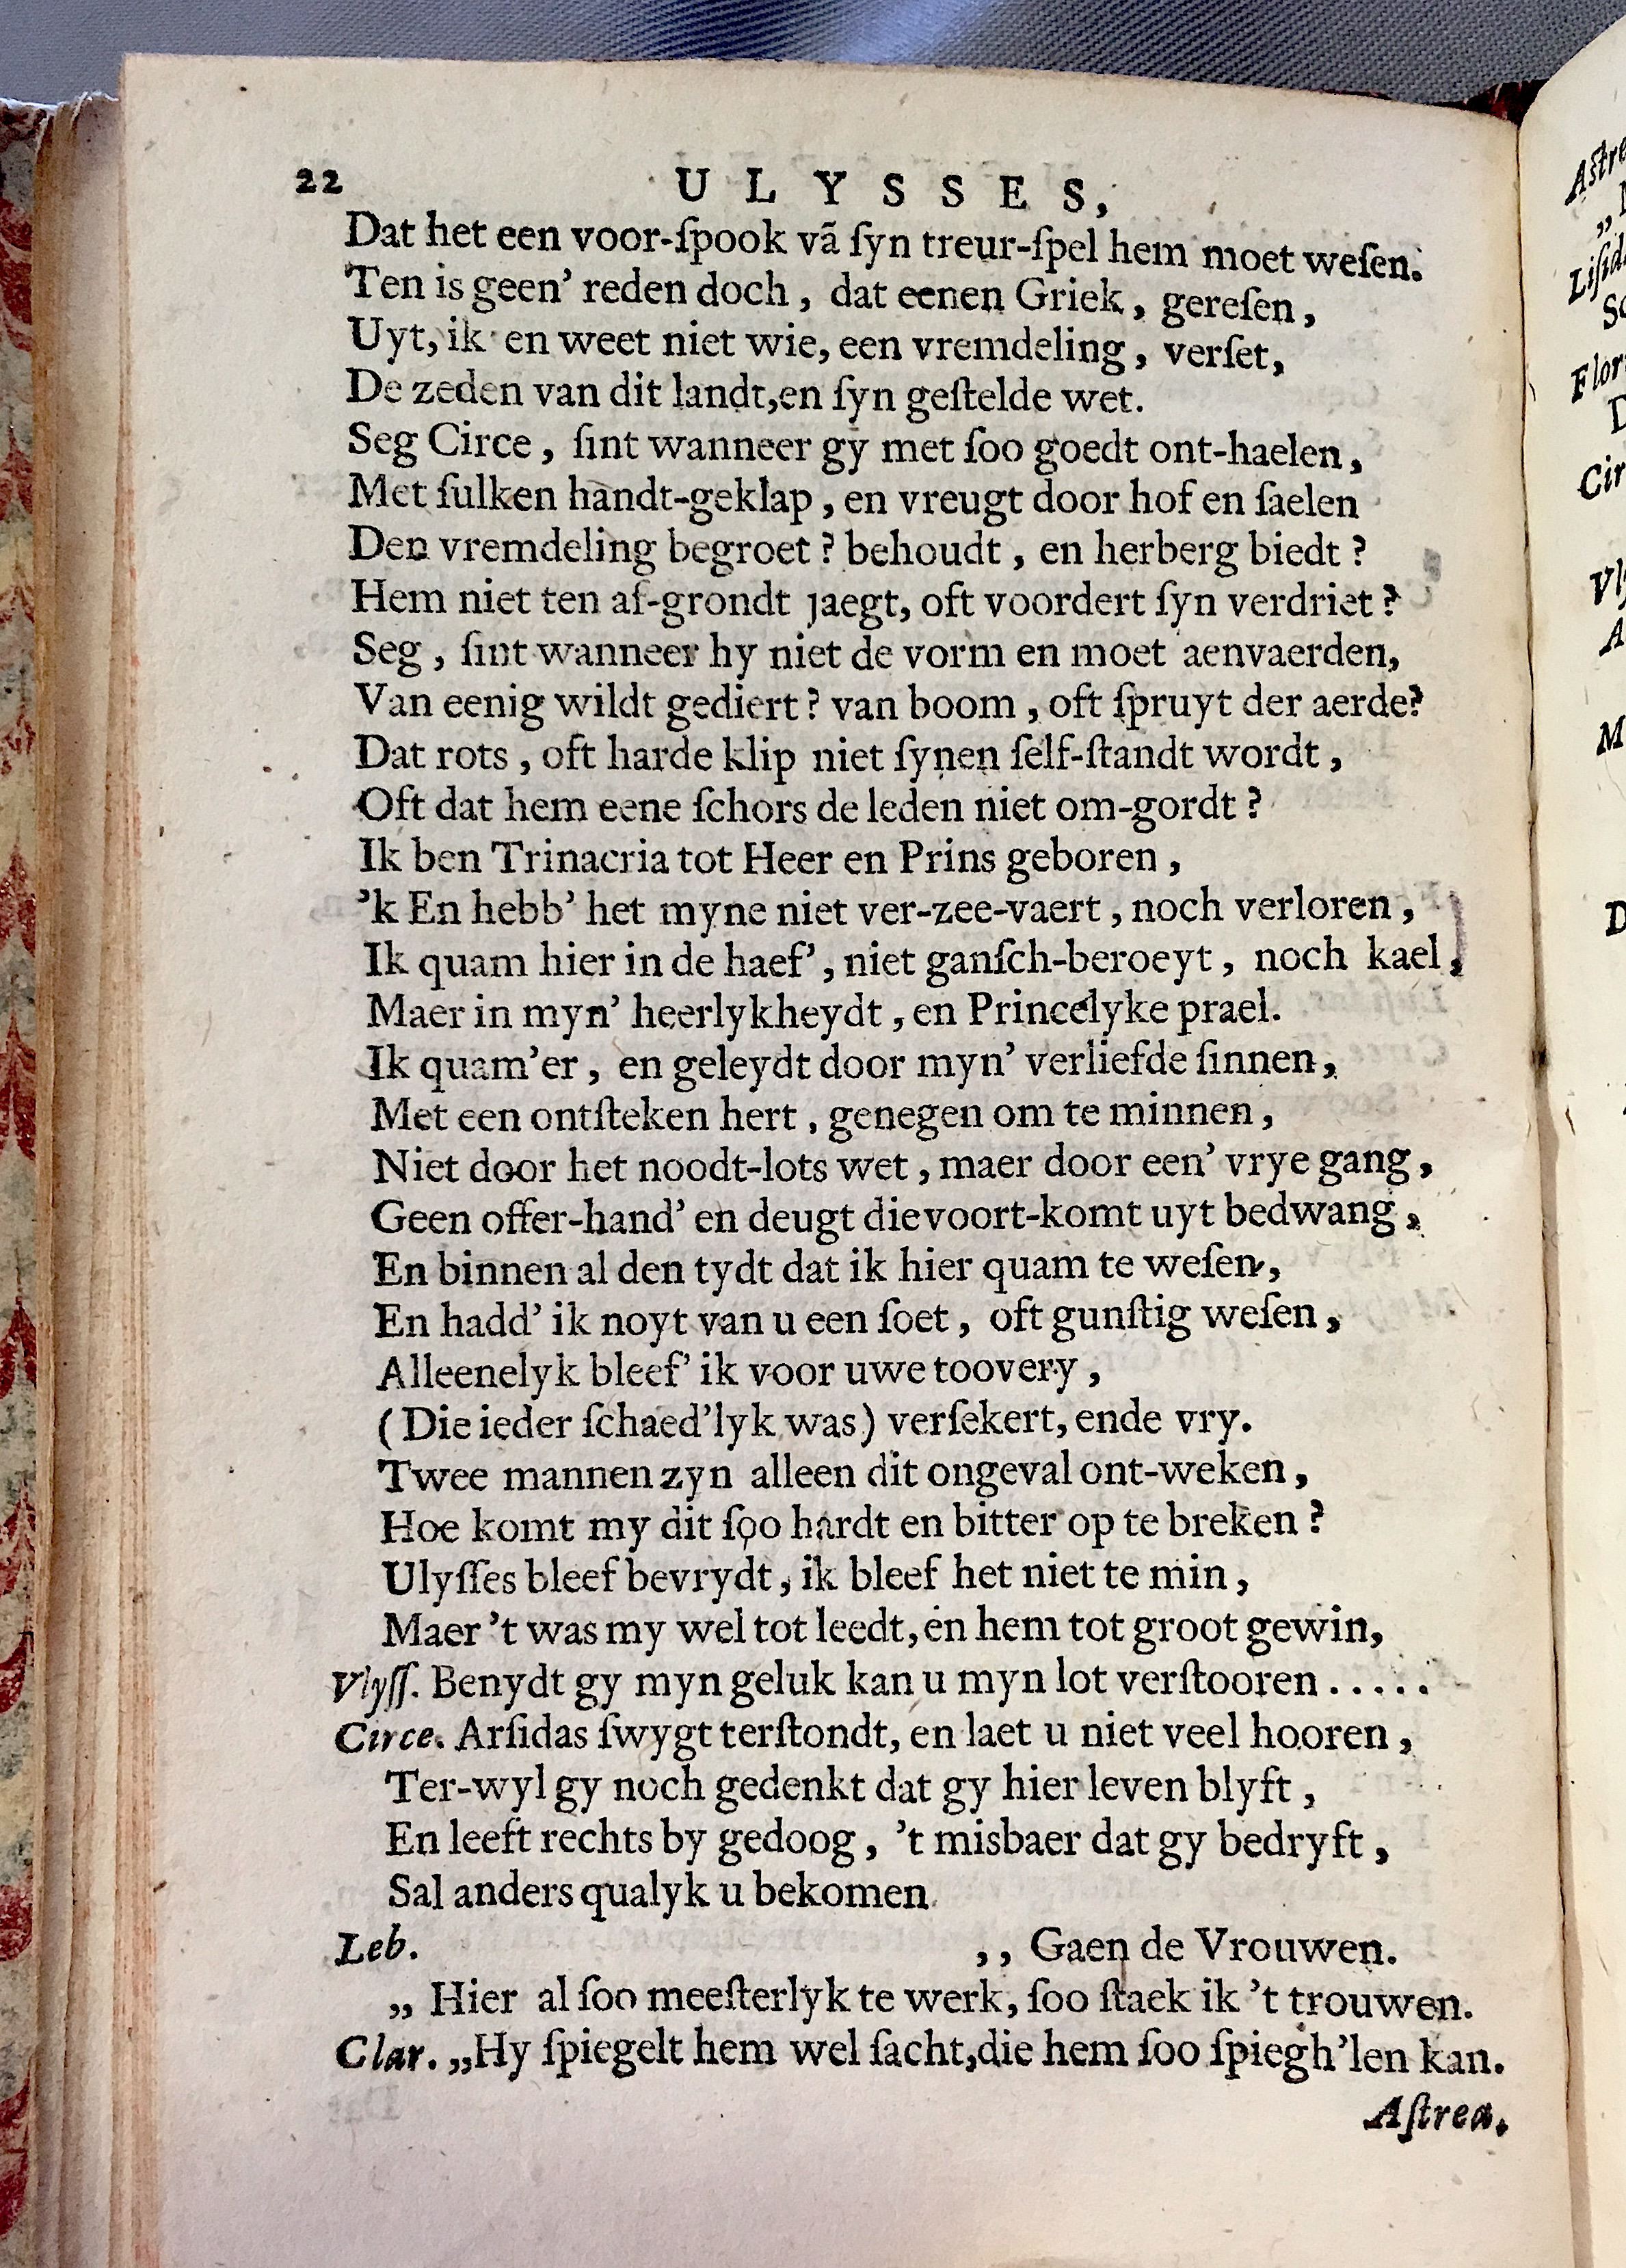 22 ULYSSES,
Dat het een voor-ſpook vã ſyn treur-ſpel hem moet weſen.
Ten is geen' reden doch, dat eenen Griek, gereſen,
Uyt, ik en weet niet wie, een vremdeling, verſet,
De zeden van dit landt, en ſyn geſtelde wet.
Seg Circe, ſint wanneer gy met ſoo goedt ont-haelen,
Met ſulken handt-geklap, en vreugt door hof en ſaelen
Den vremdeling begroet? behoudt, en herberg biedt?
Hem niet ten af-grondt jaegt, oft voordert ſyn verdriet?
Seg, ſint wanneer hy niet de vorm en moet aenvaerden,
Van eenig wildt gediert? van boom, oft ſpruyt der aerde?
Dat rots, oft harde klip niet ſynen ſelf-ſtandt wordt,
Oft dat hem eene ſchors de leden niet om-gordt?
Ik ben Trinacria tot Heer en Prins geboren,
'k En hebb' het myne niet ver-zee-vaert, noch verloren,
Ik quam hier in de haef', niet ganſch-beroeyt, noch kael,
Maer in myn' heerlykheydt, en Princelyke prael.
Ik quam'er, en geleydt door myn' verliefde ſinnen,
Met een ontſteken hert, genegen om te minnen,
Niet door het noodt-lots wet, maer door een' vrye gang,
Geen offer-hand' en deugt die voort-komt uyt bedwang,
En binnen al den tydt dat ik hier quam te weſen,
En hadd' ik noyt van u een ſoet, oft gunſtig weſen,
Alleenelyk bleef' ik voor uwe toovery,
(Die ieder ſchaed'lyk was) verſekert, ende vry.
Twee mannen zyn alleen dit ongeval ont-weken,
Hoe komt my dit ſoo hardt en bitter op te breken?
Ulyſſes bleef bevrydt, ik bleef het niet te min,
Maer 't was my wel tot leedt, en hem tot groot gewin,
Vlyſſ. Benydt gy myn geluk kan u myn lot verſtooren.....
Circe. Arſidas ſwygt terſtondt, en laet u niet veel hooren,
Ter-wyl gy noch gedenkt dat gy hier leven blyft,
En leeft rechts by gedoog, 't misbaer dat gy bedryft,
Sal anders qualyk u bekomen
Leb. ,, Gaen de Vrouwen.
,, Hier al ſoo meeſterlyk te werk, ſoo ſtaek ik 't trouwen.
Clar. ,,Hy ſpiegelt hem wel ſacht, die hem ſoo ſpiegh'len kan.
Aſtrea.